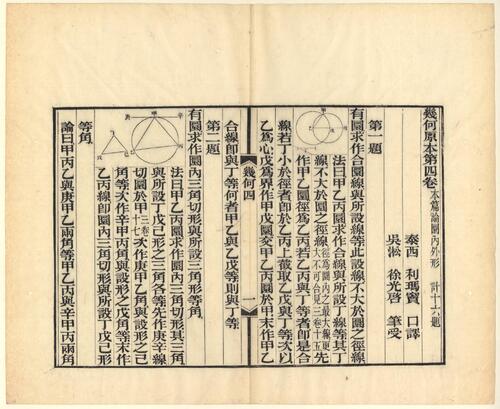 幾何原本第四卷 本篇論圜內外形 計十六題
泰西 利瑪竇 口譯
吳淞 徐光啓 筆受
第一題
有圜求作合圜線與所設線等此設線不大於圜之徑線
法曰甲乙丙圜求作合線與所設丁線等其丁
線不大於圜之徑線 徑爲圜內之最大線更大不可合見三卷十五 先
作甲乙圜徑爲乙丙若乙丙與丁等者即是合
線若丁小於徑者即於乙丙上截取乙戊與丁等次以
乙爲心戊爲界作甲戊圜交甲乙丙圜於甲末作甲乙
合線即與丁等何者甲乙與乙戊等則與丁等
第二題
有圜求作圜內三角切形與所設三角形等角
法曰甲乙丙圜求作圜內三角切形其三角
與所設丁戊己形之三角各等先作庚辛線
切圜於甲 三卷十七 次作庚甲乙角與設形之己
角等次作辛甲丙角與設形之戊角等末作
乙丙線即圜內三角切形與所設丁戊己形
等角
論曰甲丙乙與庚甲乙兩角等甲乙丙與辛甲丙兩角
幾何四
一